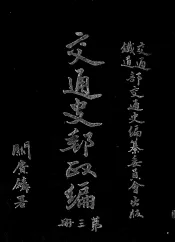 交通
鐵道部交通史編纂委員會出版
交通史郵政編
第三冊
關賡麟署